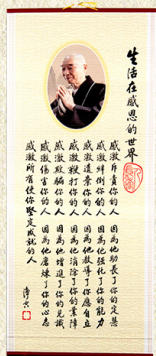 生活在感恩的世界
感激斥責你的人 因為他助長了你的定慧
感激絆倒你的人 因為他強化了你的能力
感激遺棄你的人 因為他教導了你應自立
感激鞭打你的人 因為他消除了你的業障
感激欺騙你的人 因為他增進了你的見識
感激傷害你的人 因為他磨煉了你的心志
感激所有使你堅定成就的人